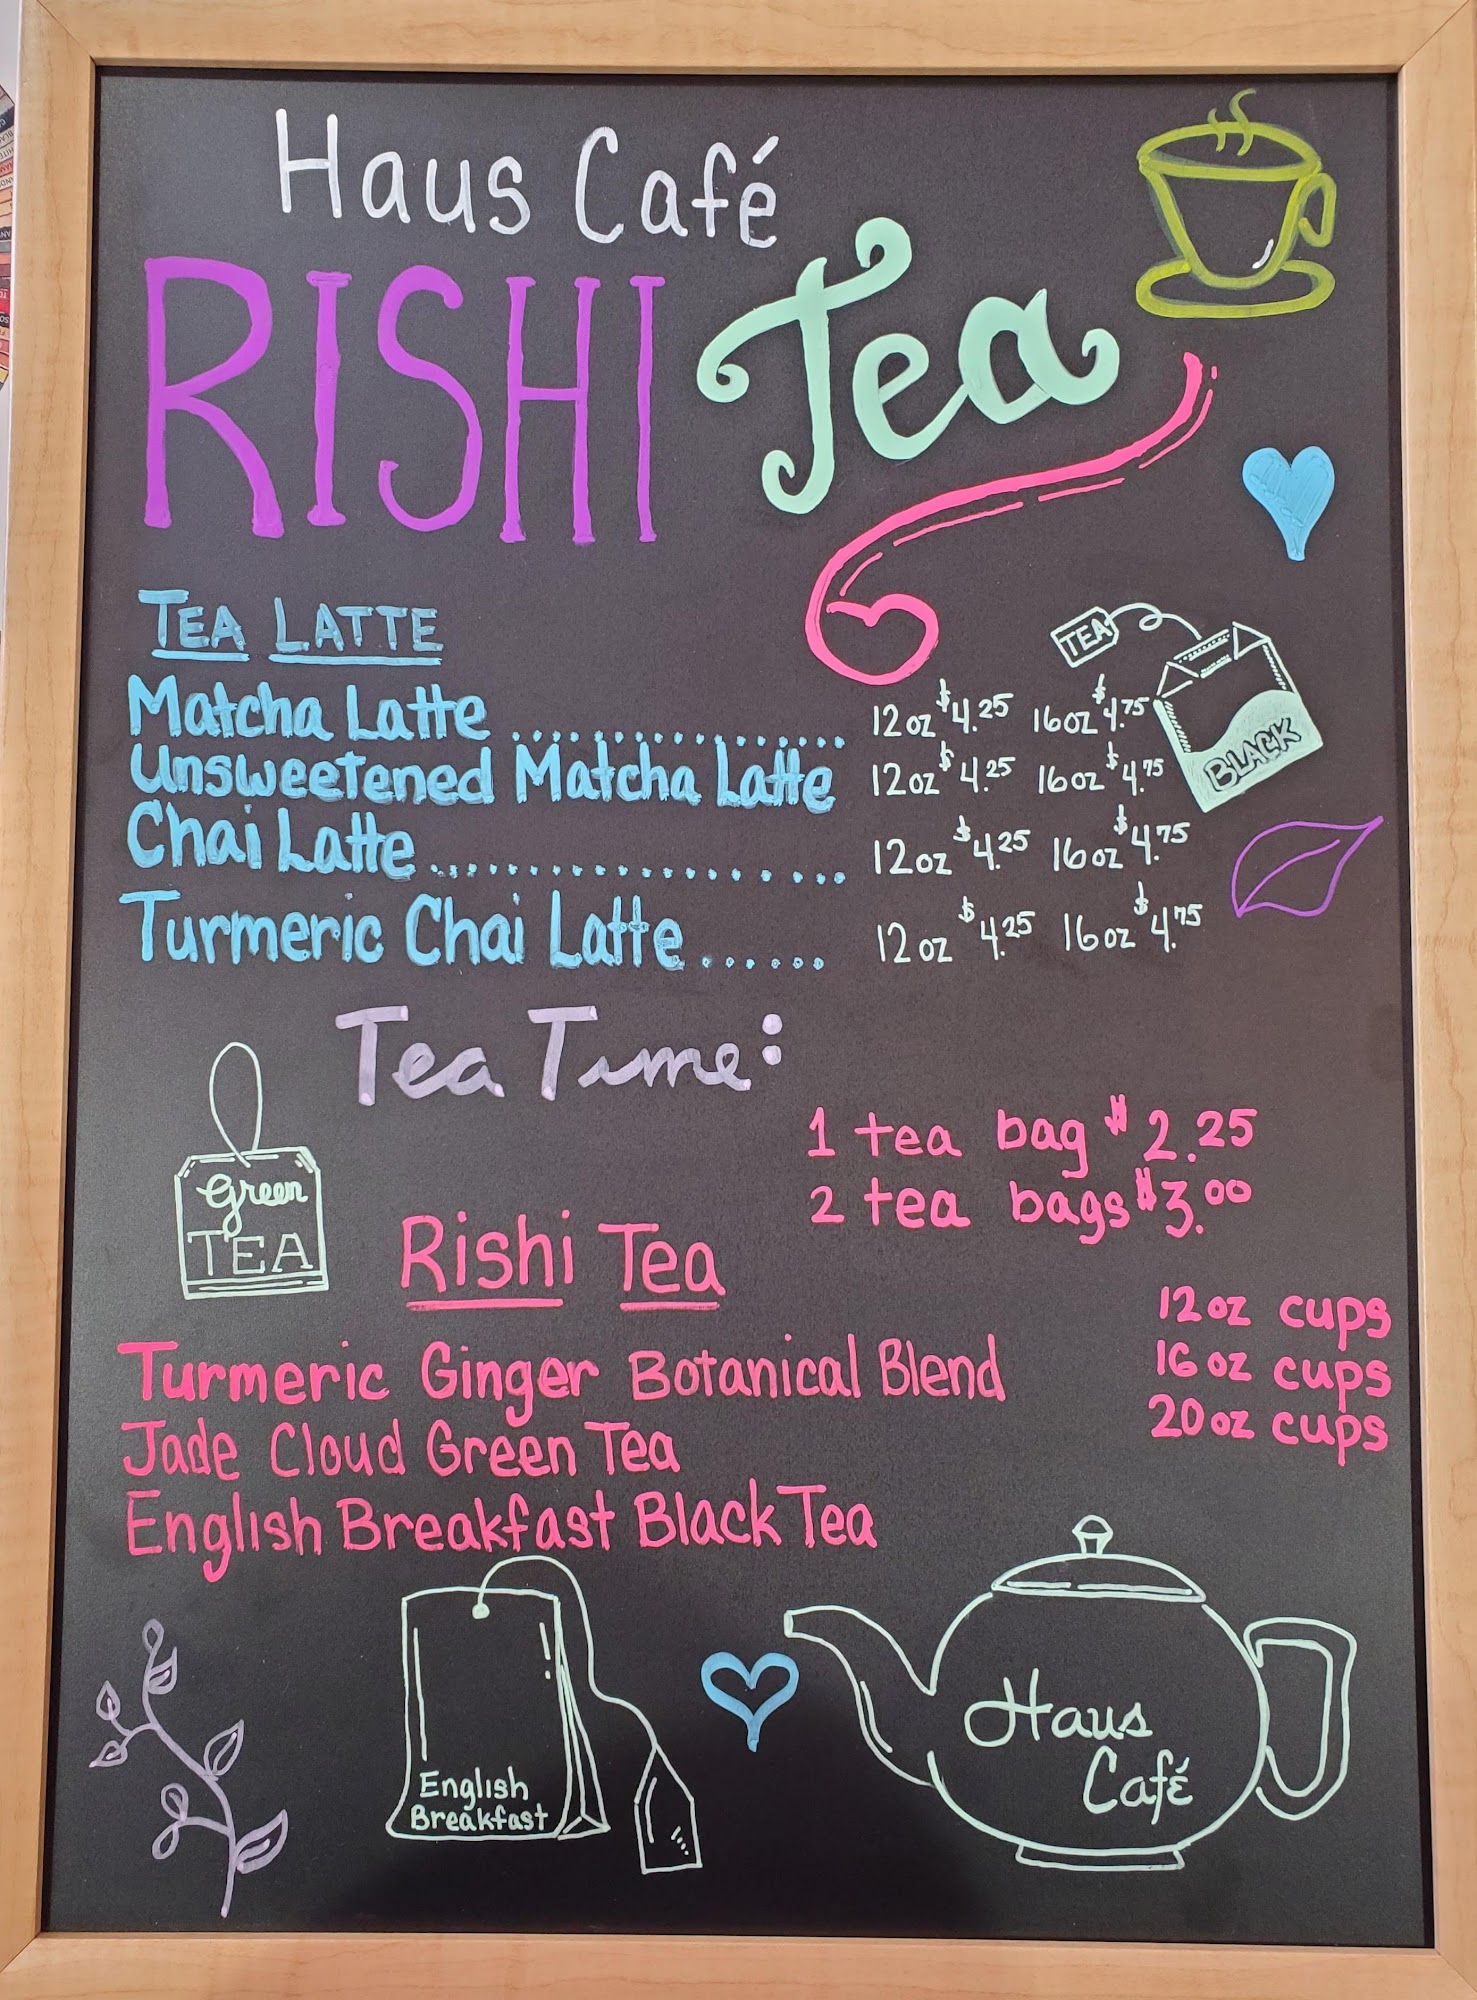 Haus Café
RISHI Tea
TEA LATTE
Matcha Latte ................ 12oz $4.25 16oz $4.75
Unsweetened Matcha Latte 12oz $4.25 16oz $4.75
Chai Latte .................... 12oz $4.25 16oz $4.75
Turmeric Chai Latte ...... 12oz $4.25 16oz $4.75
TEA
BLACK
Tea Time:
1 tea bag $2.25
2 tea bags $3.00
Green
TEA
Rishi Tea
12oz cups
16oz cups
20oz cups
Turmeric Ginger Botanical Blend
Jade Cloud Green Tea
English Breakfast Black Tea
English
Breakfast
Haus
Café